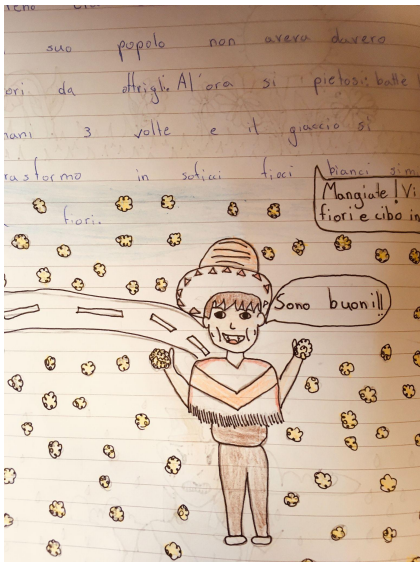 suo popolo non aveva davero
ori da offrigli. Al'ora si pietosì: battè
mani 3 volte e il giaccio si
rasformo in sofici fioci bianci sim
fiori.
Mangiate! Vi
fiori e cibo in
Sono buoni!!